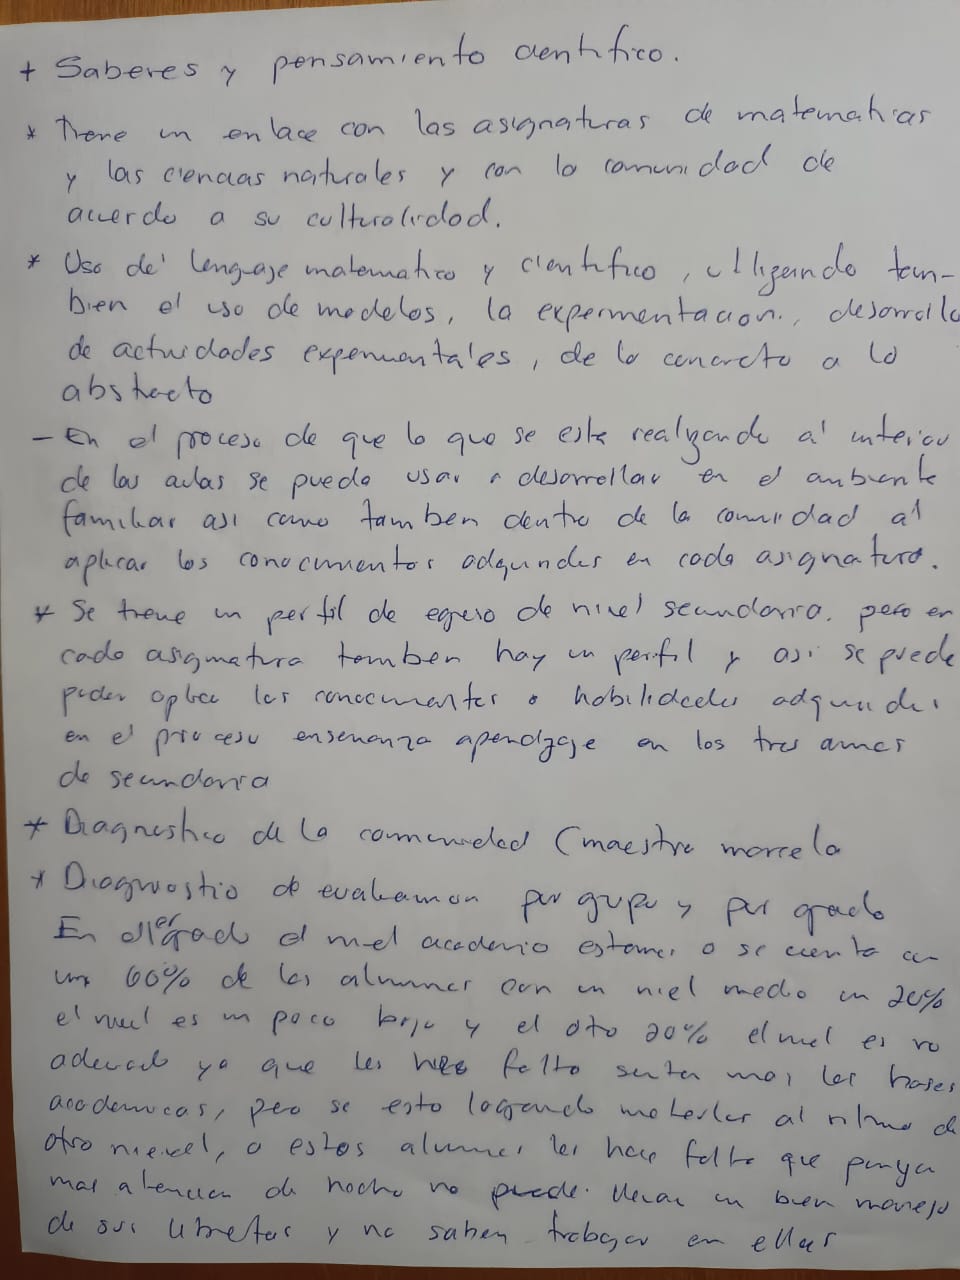 + Saberes y pensamiento cientifico.
* Tiene un enlace con las asignaturas de matematicas
y las ciencias naturales y con la comunidad de
acuerdo a su culturalidad.
* Uso del lenguaje matematico y cientifico, utilizando tam-
bien el uso de modelos, la experimentacion, desarrollo
de actividades experimentales, de lo concreto a lo
abstracto
- En el proceso de que lo que se esta realizando al interior
de las aulas se pueda usar o desarrollar en el ambiente
familiar asi como tambien dentro de la comunidad al
aplicar los conocimientos adquiridos en cada asignatura.
* Se tiene un perfil de egreso de nivel secundaria, pero en
cada asignatura tambien hay un perfil y asi se puede
poder aplicar los conocimientos o habilidades adquiridas
en el proceso enseñanza aprendizaje en los tres años
de secundaria
* Diagnostico de la comunidad (maestra marcela
* Diagnostico de evaluacion por grupo y por grado
En 1er grado el nivel academico estamos o se cuenta con
un 60% de los alumnos con un nivel medio un 20%
el nivel es un poco bajo y el otro 20% el nivel es no
adecuado ya que les hace falta sentar mas las bases
academicas, pero se esta logrando meterlos al ritmo de
otro nivel, a estos alumnos les hace falta que pongan
mas atencion de hecho no puede llevar un buen manejo
de sus libretas y no saben trabajar en ellas